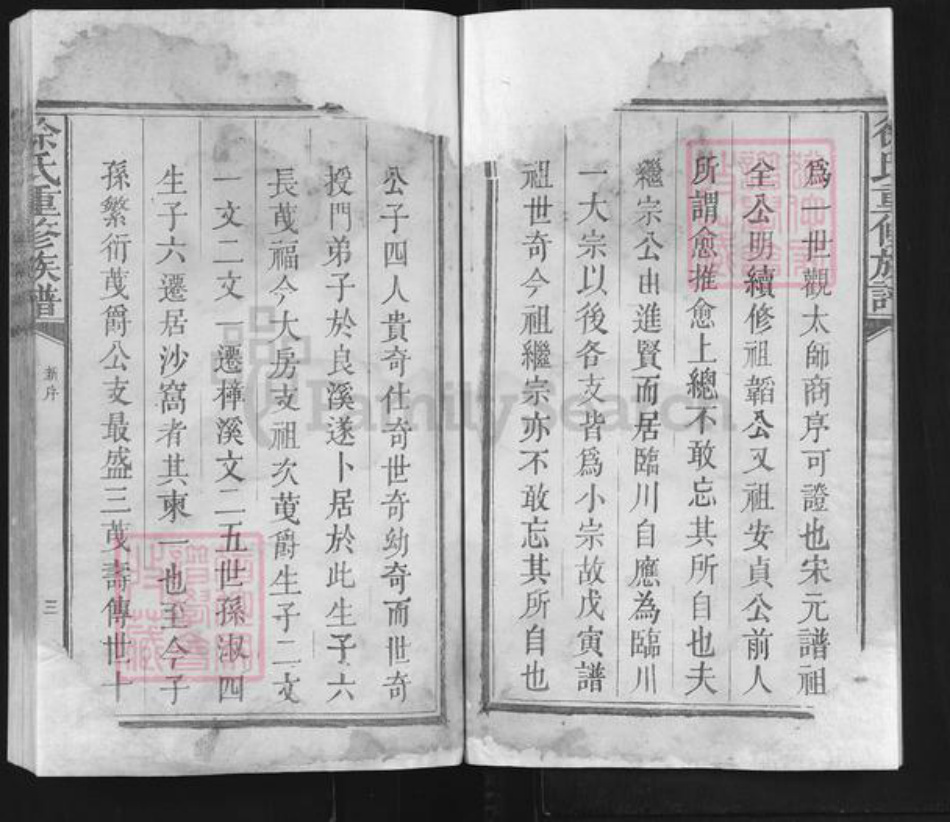 爲一世觀太師商序可證也宋元譜祖
全公明續修祖韜公又祖安貞公前人
所謂愈推愈上總不敢忘其所自也夫
繼宗公由進賢而居臨川自應為臨川
一大宗以後各支皆爲小宗故戊寅譜
祖世奇今祖繼宗亦不敢忘其所自也
公子四人貴奇仕奇世奇幼奇而世奇
授門弟子於良溪遂卜居於此生子六
長茂福今大房支祖次茂爵生子二文
一文二文一遷樟溪文二五世孫淑四
生子六遷居沙窩者其東一也至今子
孫繁衍茂爵公支最盛三茂壽傳世二十
徐氏重修族譜
新序
三
FamilySearch